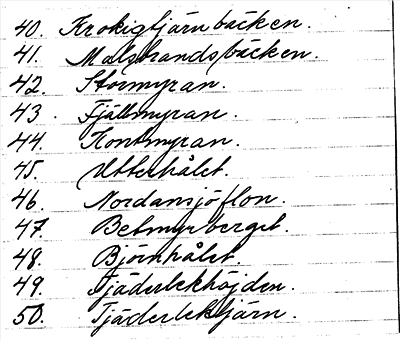 40. Krokigtjärnbäcken.
41. Malstrandsbäcken.
42. Stormyran.
43. Fjällmyran.
44. Kontmyran.
45. Utterhålet.
46. Nordansjöflon.
47. Betmyrberget.
48. Björnhålet.
49. Tjäderlekhöjden.
50. Tjäderlektjärn.